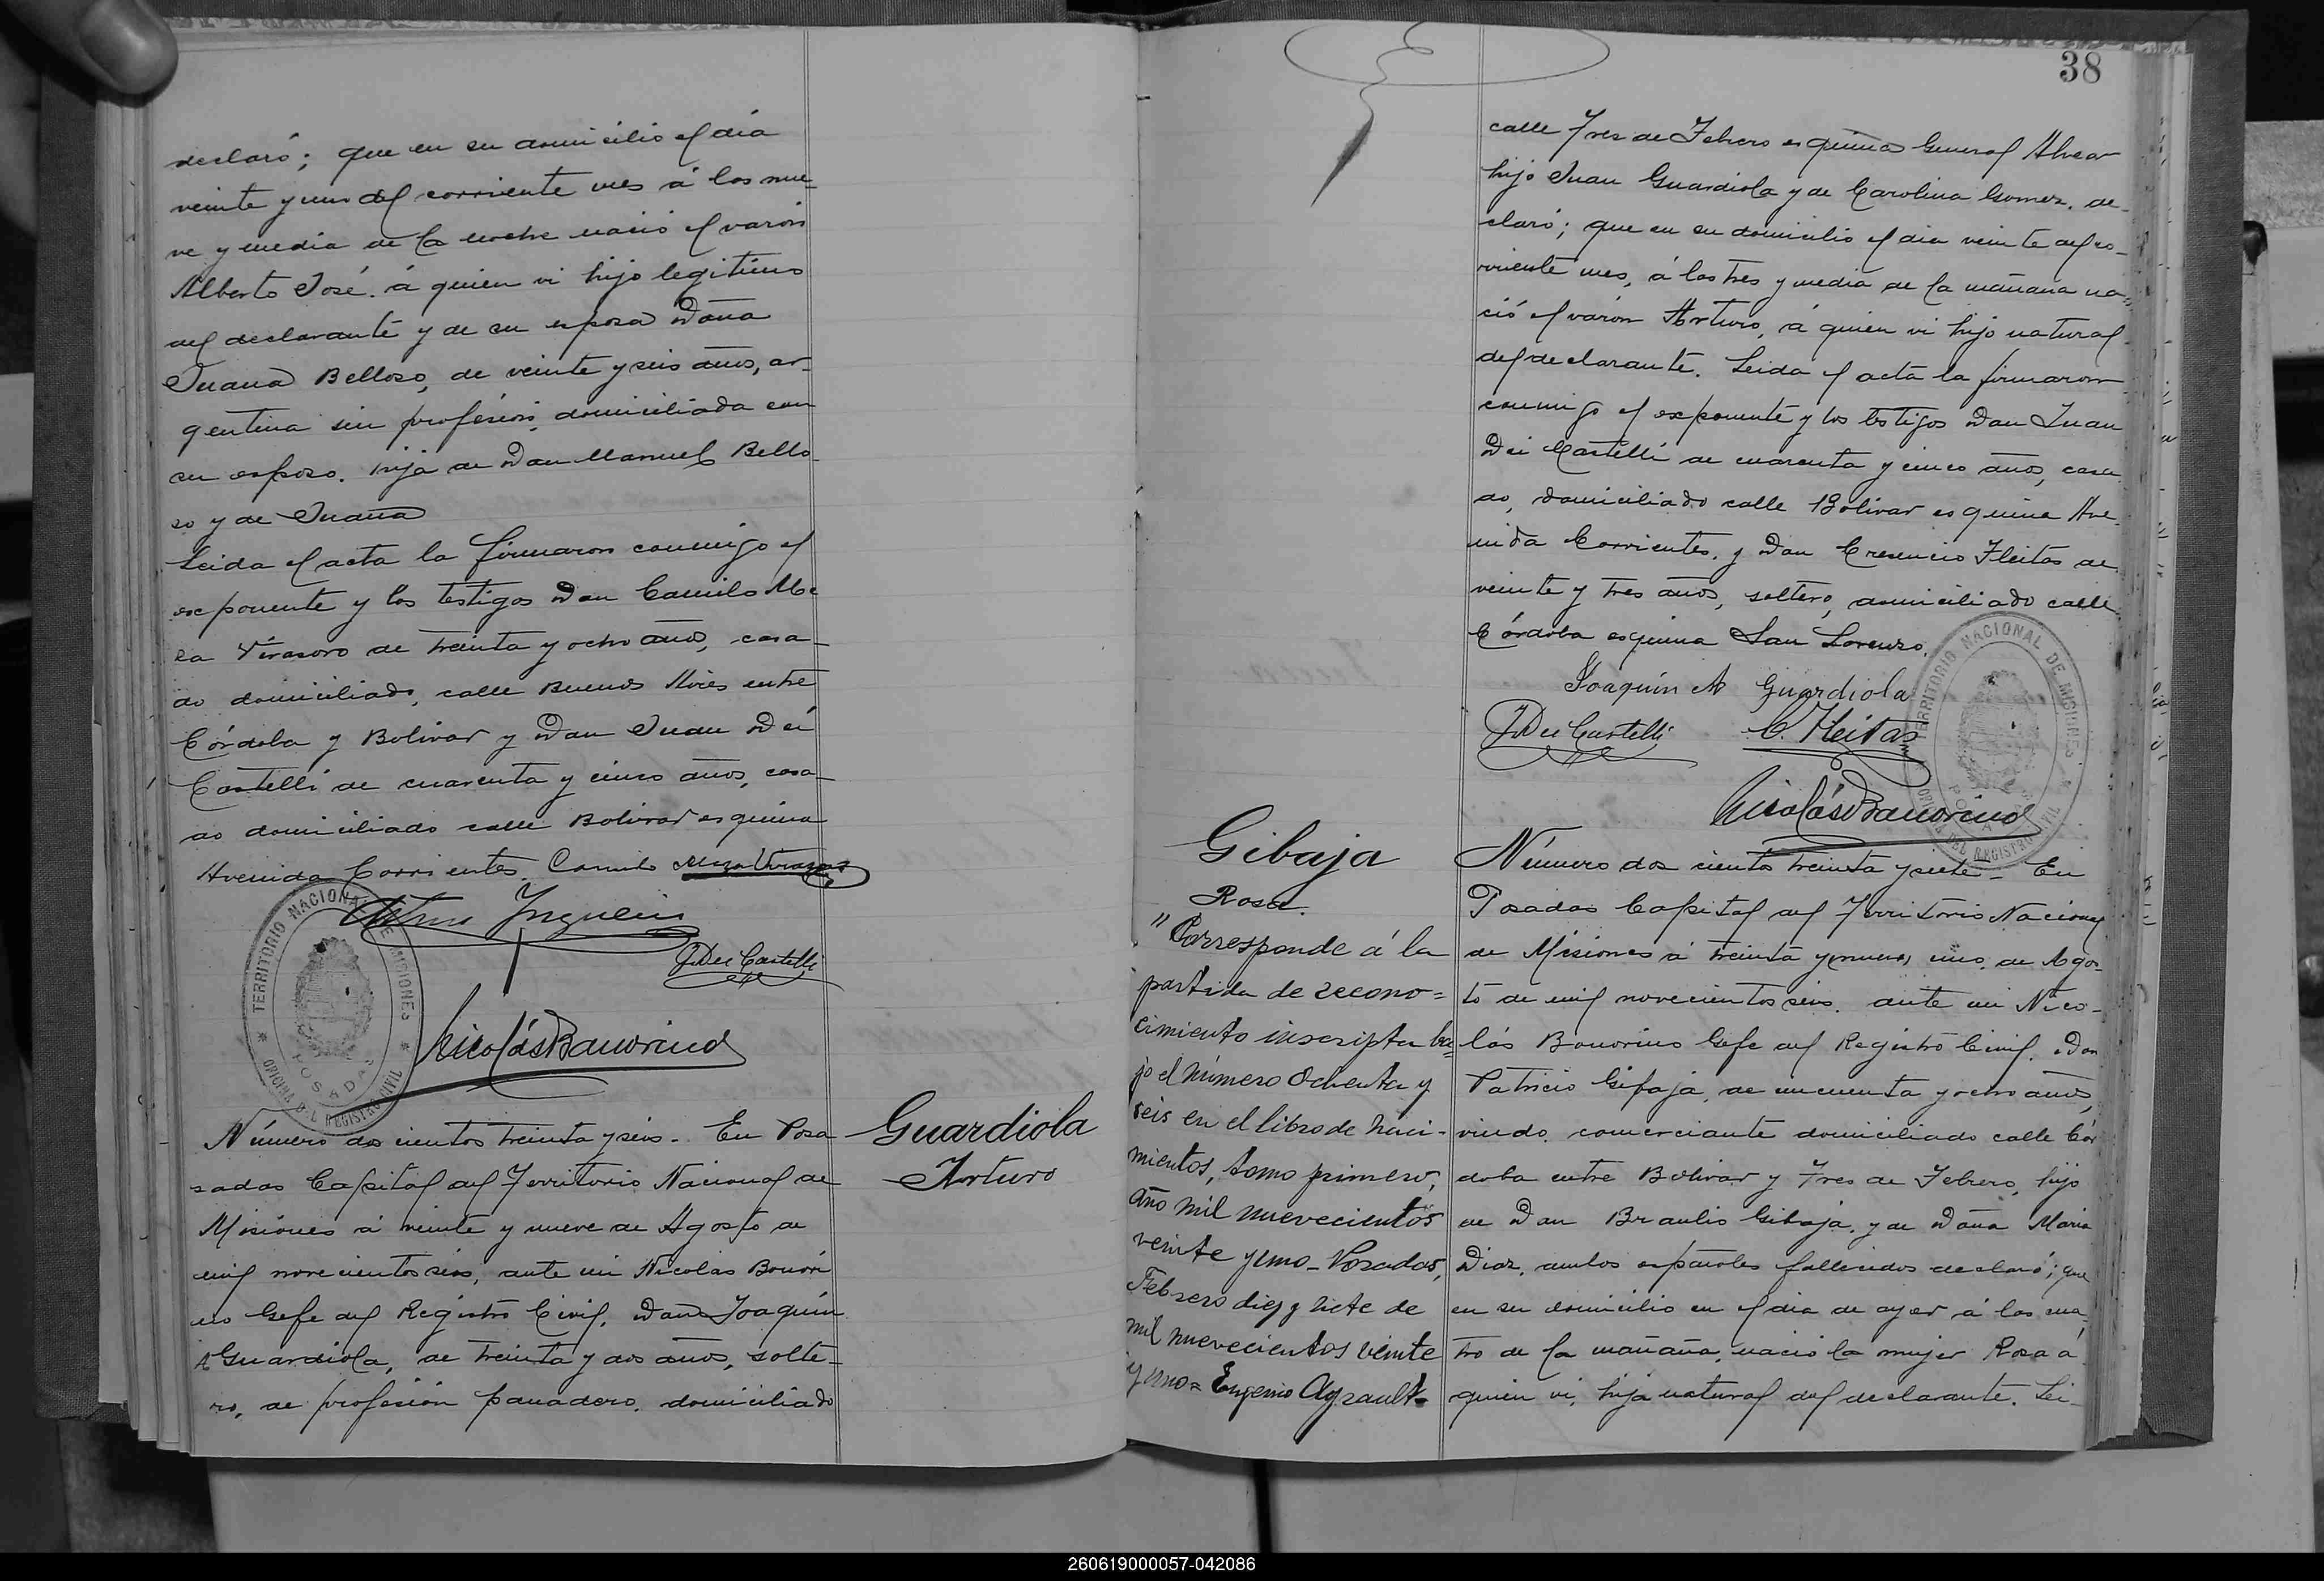 declaró; que en su domicilio el día
veinte y uno del corriente mes á las nue-
ve y media de la noche nació el varón
Alberto José. á quien vi hijo legitimo
del declarante y de su esposa Doña
Juana Belloso, de veinte y seis años, ar-
gentina sin profesión, domiciliada con
su esposo. hija de Don Manuel Bello-
so y de Juana
Leida el acta la firmaron conmigo el
exponente y los testigos Don Camilo Me
za Virasoro de treinta y ocho años, casa-
do domiciliado, calle Buenos Aires entre
Córdoba y Bolivar y Don Juan Dei
Castelli de cuarenta y cinco años, casa-
do domiciliado calle Bolivar esquina
Avenida Corrientes. Camilo Meza Virasoro
J Dei Castelli
TERRITORIO NACIONAL DE MISIONES
POSADAS
OFICINA DEL REGISTRO CIVIL
Nicolás Bonorino
Número dos cientos treinta y seis. En Posa
sadas Capital del Territorio Nacional de
Misiones á veinte y nueve de Agosto de
mil novecientos seis, ante mi Nicolas Bonori
no Gefe del Registro Civil, Don Joaquin
A Guardiola, de treinta y dos años, solte-
ro, de profesión panadero. domiciliado
Guardiola
Arturo
38
calle Tres de Febrero esquina General Alvear
hijo Juan Guardiola y de Carolina Gomez. de-
claró; que en su domicilio el dia veinte del co-
rriente mes, á las tres y media de la mañana na-
ció el varón Arturo, á quien vi hijo natural
del declarante. Leida el acta la firmaron
conmigo el exponente y los testigos Don Juan
Dei Castelli de cuarenta y cinco años, casa
do, domiciliado calle Bolivar esquina Ave-
nida Corrientes. y Don Cresencio Fleitas de
veinte y tres años, soltero, domiciliado calle
Córdoba esquina San Lorenzo.
Joaquin A Guardiola
J Dei Castelli C. Fleitas
TERRITORIO NACIONAL DE MISIONES
POSADAS
OFICINA DEL REGISTRO CIVIL
Nicolás Bonorino
Gibaja
Rosa.
"Corresponde á la
partida de recono=
cimiento inscripta ba=
jo el número ochenta y
seis en el libro de naci-
mientos, tomo primero,
año mil nuevecientos
veinte y uno - Posadas,
Febrero diez y siete de
mil nuevecientos veinte
y uno = Eugenio Ayrault.
Número dos cientos treinta y siete - En
Posadas Capital del Territorio Nacional
de Misiones á treinta y uno, de Agos-
to de mil novecientos seis. ante mi Nico-
lás Bonorino Gefe del Registro Civil. Don
Patricio Gibaja, de cincuenta y ocho años,
viudo. comerciante domiciliado calle Cór
doba entre Bolivar y Tres de Febrero, hijo
de Don Braulio Gibaja. y de Doña Maria
Diaz. ambos españoles fallecidos declaró; que
en su domicilio en el dia de ayer á las cua-
tro de la mañana, nació la mujer Rosa á
quien vi, hija natural del declarante. Lei-
260619000057-042086